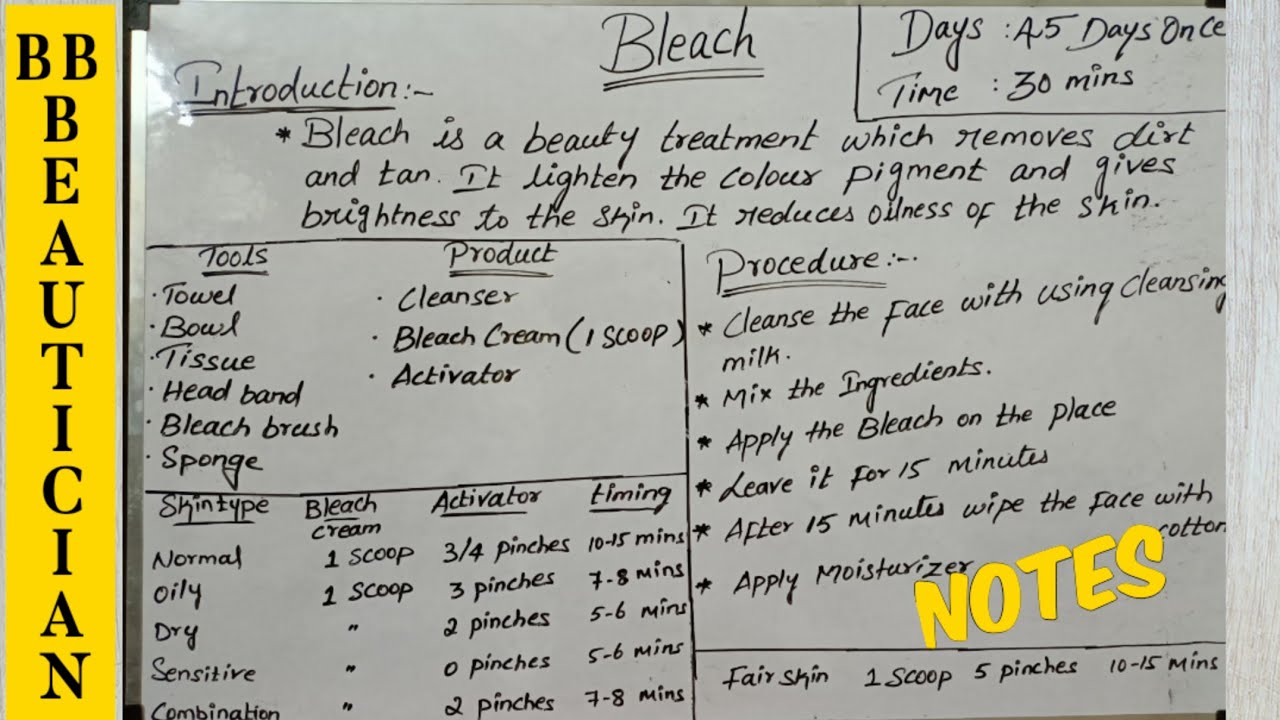 BB
BEAUTICIAN
Bleach
Days : 45 Days Once
Time : 30 mins
Introduction:-
* Bleach is a beauty treatment which removes dirt
and tan. It lighten the colour pigment and gives
brightness to the skin. It reduces oilness of the skin.
Tools
· Towel
· Bowl
· Tissue
· Head band
· Bleach brush
· Sponge
Product
· Cleanser
· Bleach Cream (1 SCOOP)
· Activator
Skin type Bleach cream Activator timing
Normal 1 SCOOP 3/4 pinches 10-15 mins
Oily 1 SCOOP 3 pinches 7-8 mins
Dry " 2 pinches 5-6 mins
Sensitive " 0 pinches 5-6 mins
Combination " 2 pinches 7-8 mins
Procedure:-
* Cleanse the Face with using Cleansing
milk.
* Mix the Ingredients.
* Apply the Bleach on the place
* Leave it for 15 minutes
* After 15 minutes wipe the Face with
cotton
* Apply Moisturizer
NOTES
Fair Skin 1 SCOOP 5 pinches 10-15 Mins